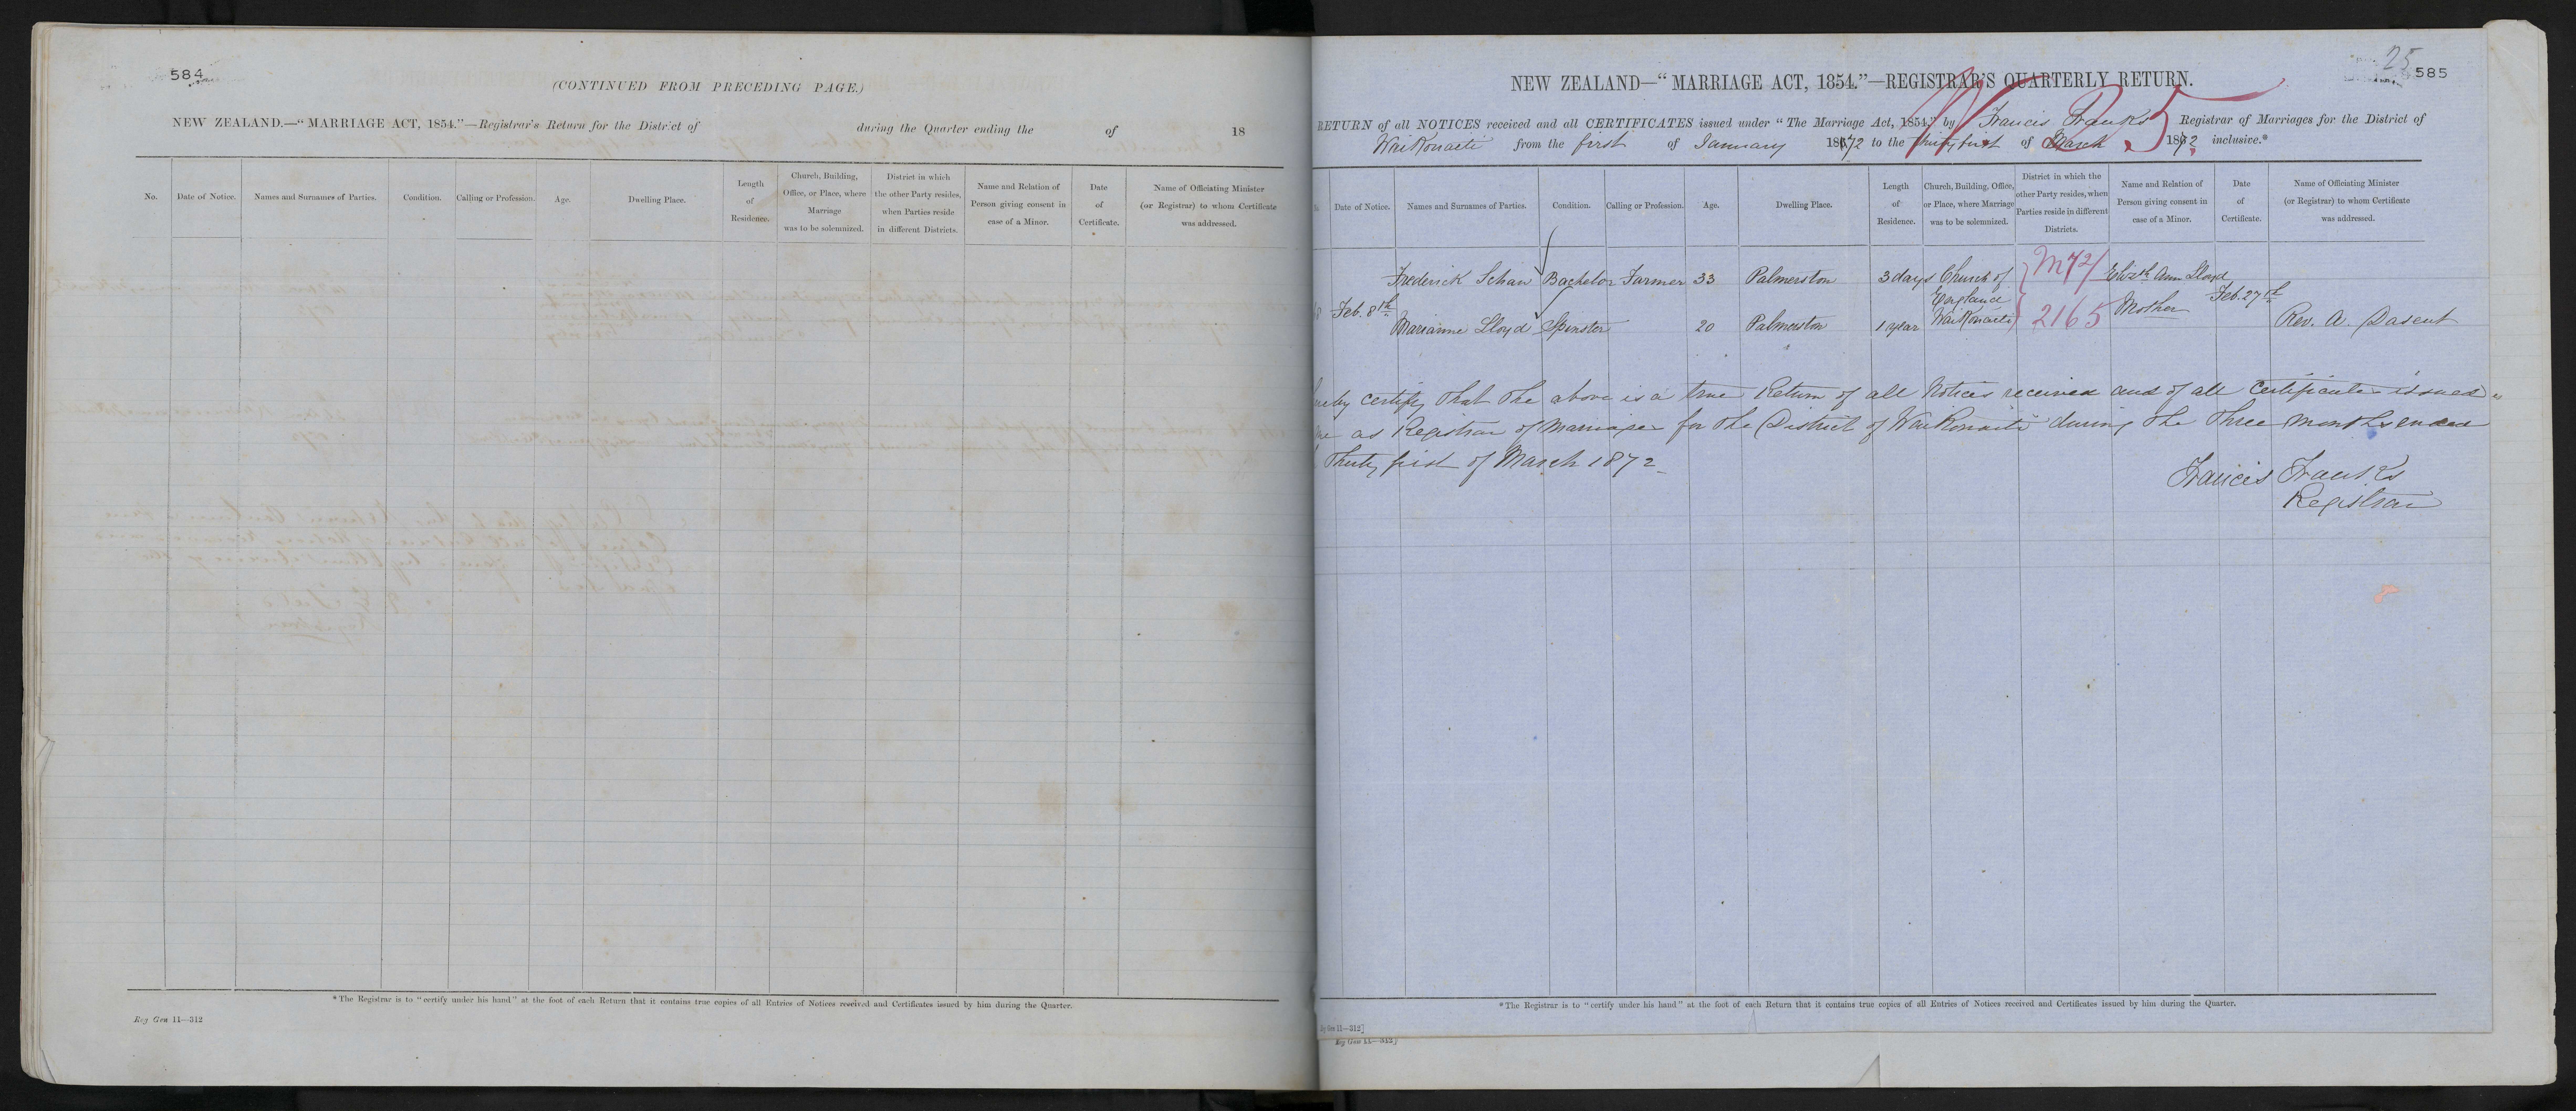 584
(CONTINUED FROM PRECEDING PAGE.)
NEW ZEALAND.—"MARRIAGE ACT, 1854."—Registrar's Return for the District of during the Quarter ending the of 18
No. Date of Notice. Names and Surnames of Parties. Condition. Calling or Profession. Age. Dwelling Place. Length of Residence. Church, Building, Office, or Place, where Marriage was to be solemnized. District in which the other Party resides, when Parties reside in different Districts. Name and Relation of Person giving consent in case of a Minor. Date of Certificate.* Name of Officiating Minister (or Registrar) to whom Certificate was addressed.
*The Registrar is to "certify under his hand" at the foot of each Return that it contains true copies of all Entries of Notices received and Certificates issued by him during the Quarter.
Reg Gen 11—312
25
585
NEW ZEALAND—"MARRIAGE ACT, 1854."—REGISTRAR'S QUARTERLY RETURN.
RETURN of all NOTICES received and all CERTIFICATES issued under "The Marriage Act, 1854," by Francis Franks Registrar of Marriages for the District of
Waikouaiti from the first of January 1872 to the thirty first of March 1872 inclusive.*
Date of Notice. Names and Surnames of Parties. Condition. Calling or Profession. Age. Dwelling Place. Length of Residence. Church, Building, Office, or Place, where Marriage was to be solemnized. District in which the other Party resides, when Parties reside in different Districts. Name and Relation of Person giving consent in case of a Minor. Date of Certificate. Name of Officiating Minister (or Registrar) to whom Certificate was addressed.
Feb. 8th
Frederick Schaw Bachelor Farmer 33 Palmerston 3 days Church of England Waikouaiti M72/ 2165 Elizth Ann Lloyd Mother Feb. 27th Rev. A. Dasent
Marianne Lloyd Spinster 20 Palmerston 1 year
certify that the above is a true Return of all Notices received and of all Certificates issued
as Registrar of Marriages for the District of Waikouaiti during the three months ended
Thirty first of March 1872
Francis Franks
Registrar
*The Registrar is to "certify under his hand" at the foot of each Return that it contains true copies of all Entries of Notices received and Certificates issued by him during the Quarter.
Gen 11—312]
Reg Gen 11—312]